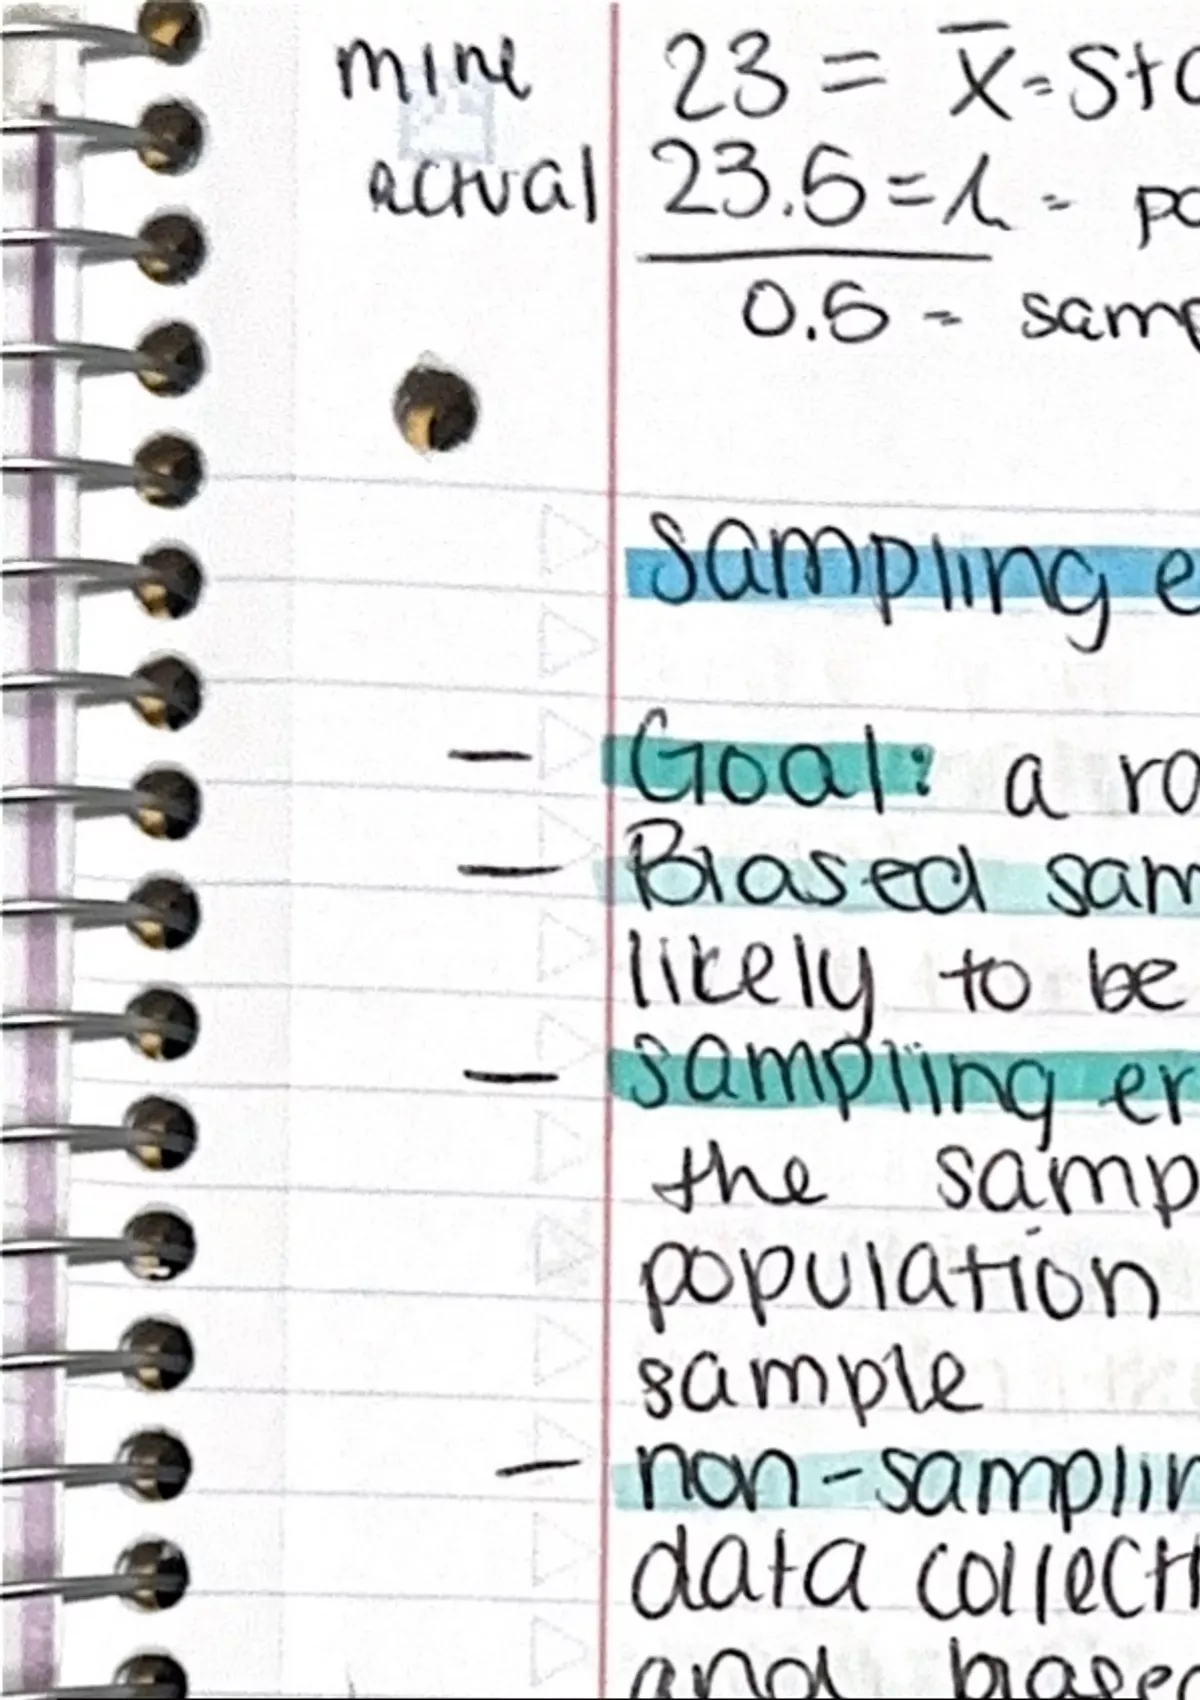 mine 23 = x̄ = sta
actual 23.5 = μ = po
0.5 = samp
sampling e
- Goal: a ra
- Biased sam
likely to be
- sampling er
the samp
population
sample
- non-samplin
data collecti
and biased